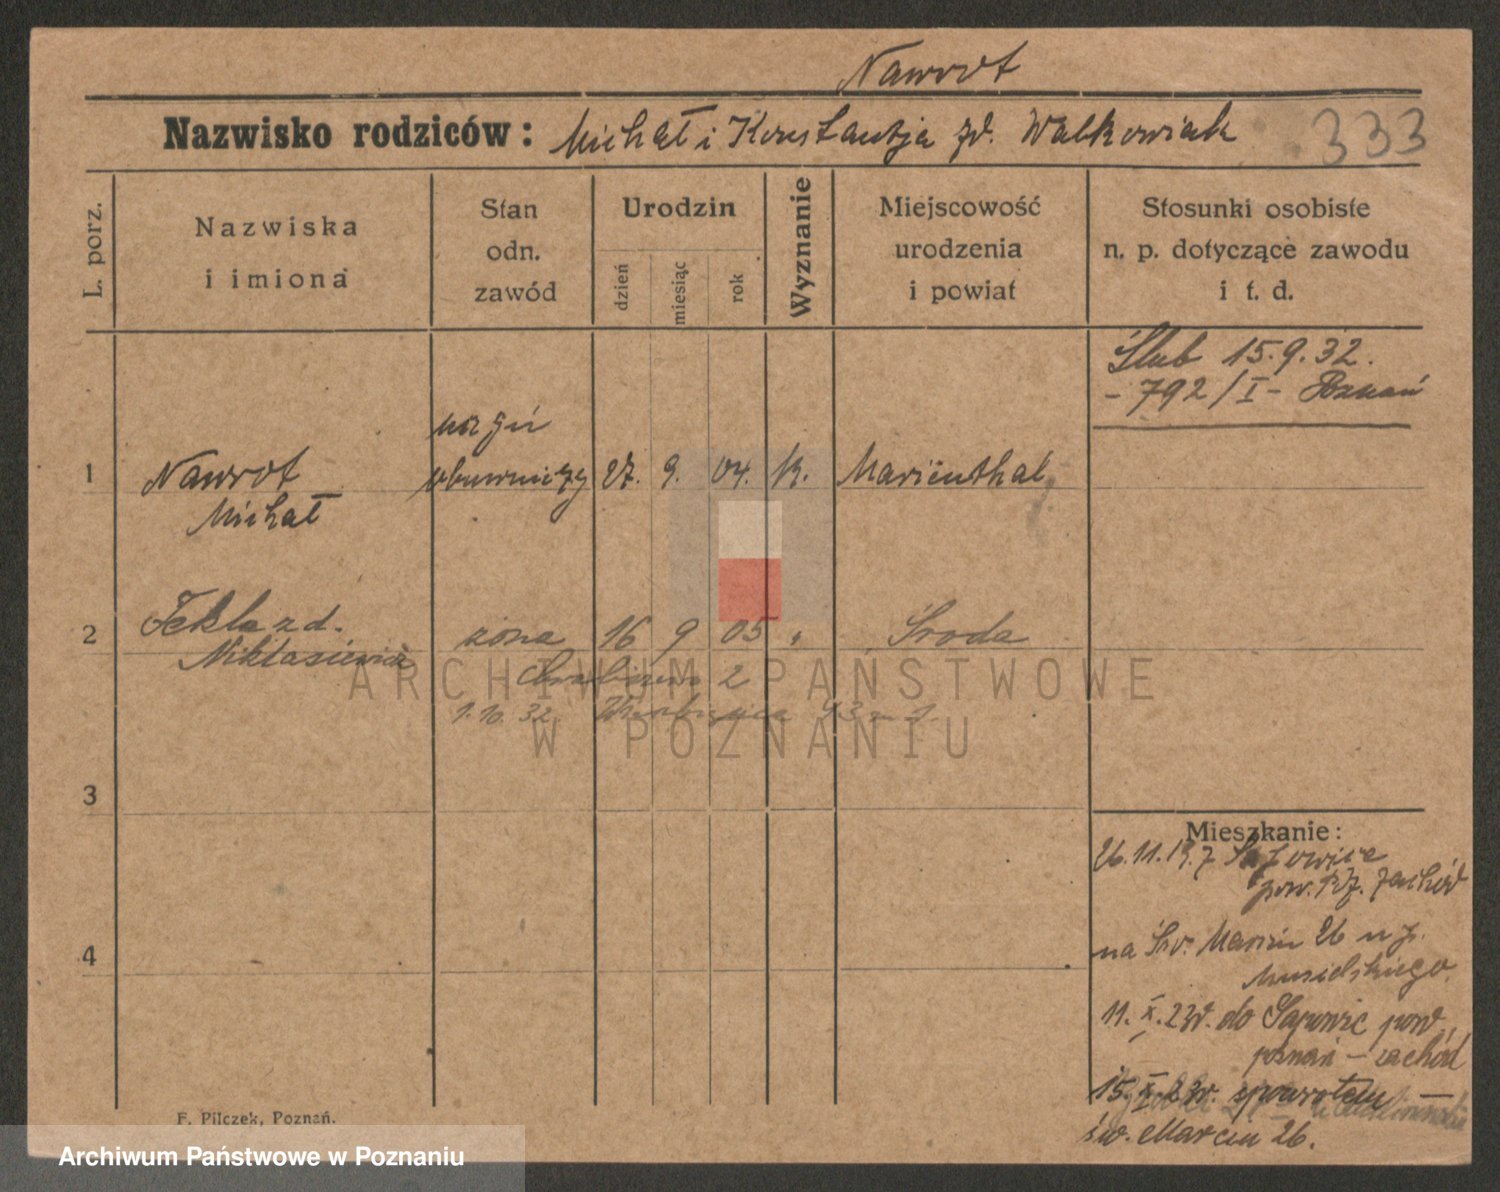 Nawrot
Nazwisko rodziców: Michał i Konstantja zd. Walkowiak 333
L. porz.
Nazwiska
i imiona
Stan
odn.
zawód
Urodzin
dzień
miesiąc
rok
Wyznanie
Miejscowość
urodzenia
i powiat
Stosunki osobiste
n. p. dotyczące zawodu
i t. d.
Ślub 15.9.32.
- 792/I - Poznań
1
Nawrot
Michał
obuwniczy
27. 9. 04.
Marienthal
2
Tekla z d.
Mikłasiewicz
żona
16 9 05 "
Środa
2
1.10.32.
3
4
Mieszkanie:
26.11.
pow. zachód
na Św. Marcin 26
Musielskiego.
11. X. 23r. do Sapowic pow.
poznań - zachód
15. X. 23r. spowrotem -
św. Marcin 26.
F. Pilczek, Poznań.
ARCHIWUM PAŃSTWOWE
W POZNANIU
Archiwum Państwowe w Poznaniu